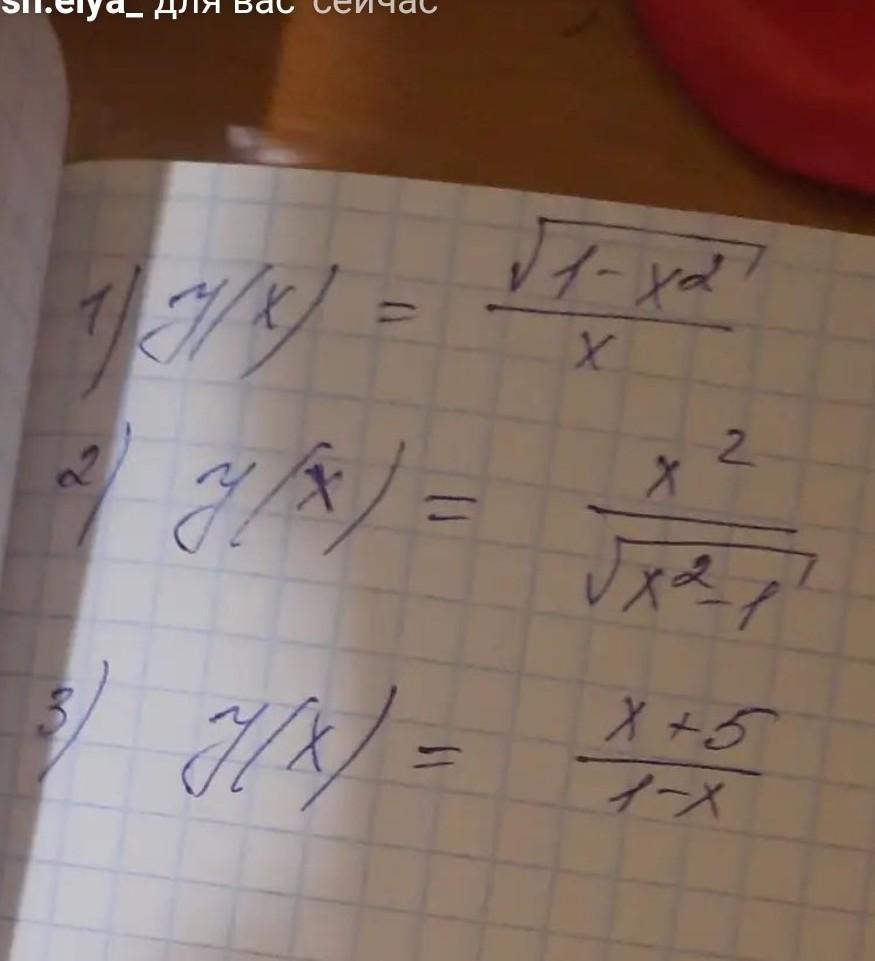 sh.elya_ для вас сейчас
1) y(x) = √(1-x²) / x
2) y(x) = x² / √(x²-1)
3) y(x) = x+5 / 1-x